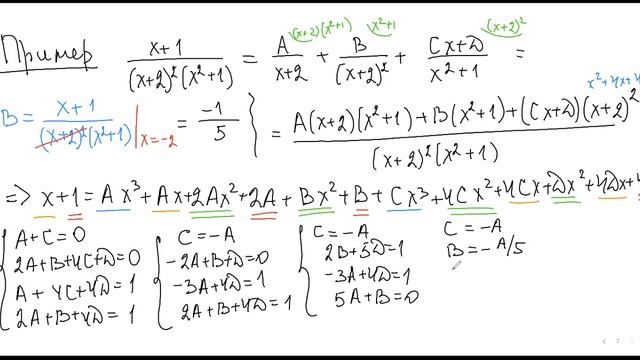 Пример (x+1)/((x+2)²(x²+1)) = A/(x+2) + B/(x+2)² + (Cx+D)/(x²+1) =
(x+2)(x²+1) x²+1 (x+2)²
B = (x+1)/((x+2)²(x²+1)) | x=-2 = -1/5 } = (A(x+2)(x²+1)+B(x²+1)+(Cx+D)(x+2)²)/((x+2)²(x²+1))
x²+4x+4
=> x+1 = Ax³+Ax+2Ax²+2A+Bx²+B+Cx³+4Cx²+4Cx+Dx²+4Dx+4
{ A+C=0
2A+B+4C+D=0
A+4C+4D=1
2A+B+4D=1
{ C=-A
-2A+B+D=0
-3A+4D=1
2A+B+4D=1
{ C=-A
2B+5D=1
-3A+4D=1
5A+B=0
C=-A
B=-A/5
7